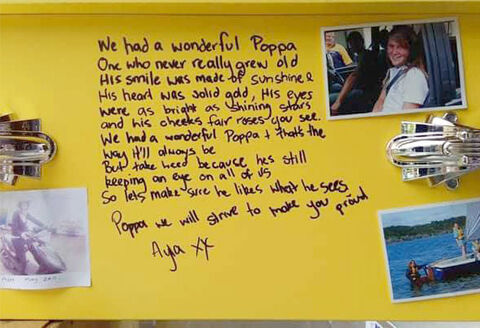 We had a wonderful Poppa
One who never really grew old
His smile was made of sunshine &
His heart was solid gold, His eyes
were as bright as shining stars
and his cheeks fair roses you see.
We had a wonderful Poppa & thats the
way it'll always be
But take heed because hes still
keeping an eye on all of us
So lets make sure he likes what he sees
Poppa we will strive to make you proud
Aya XX